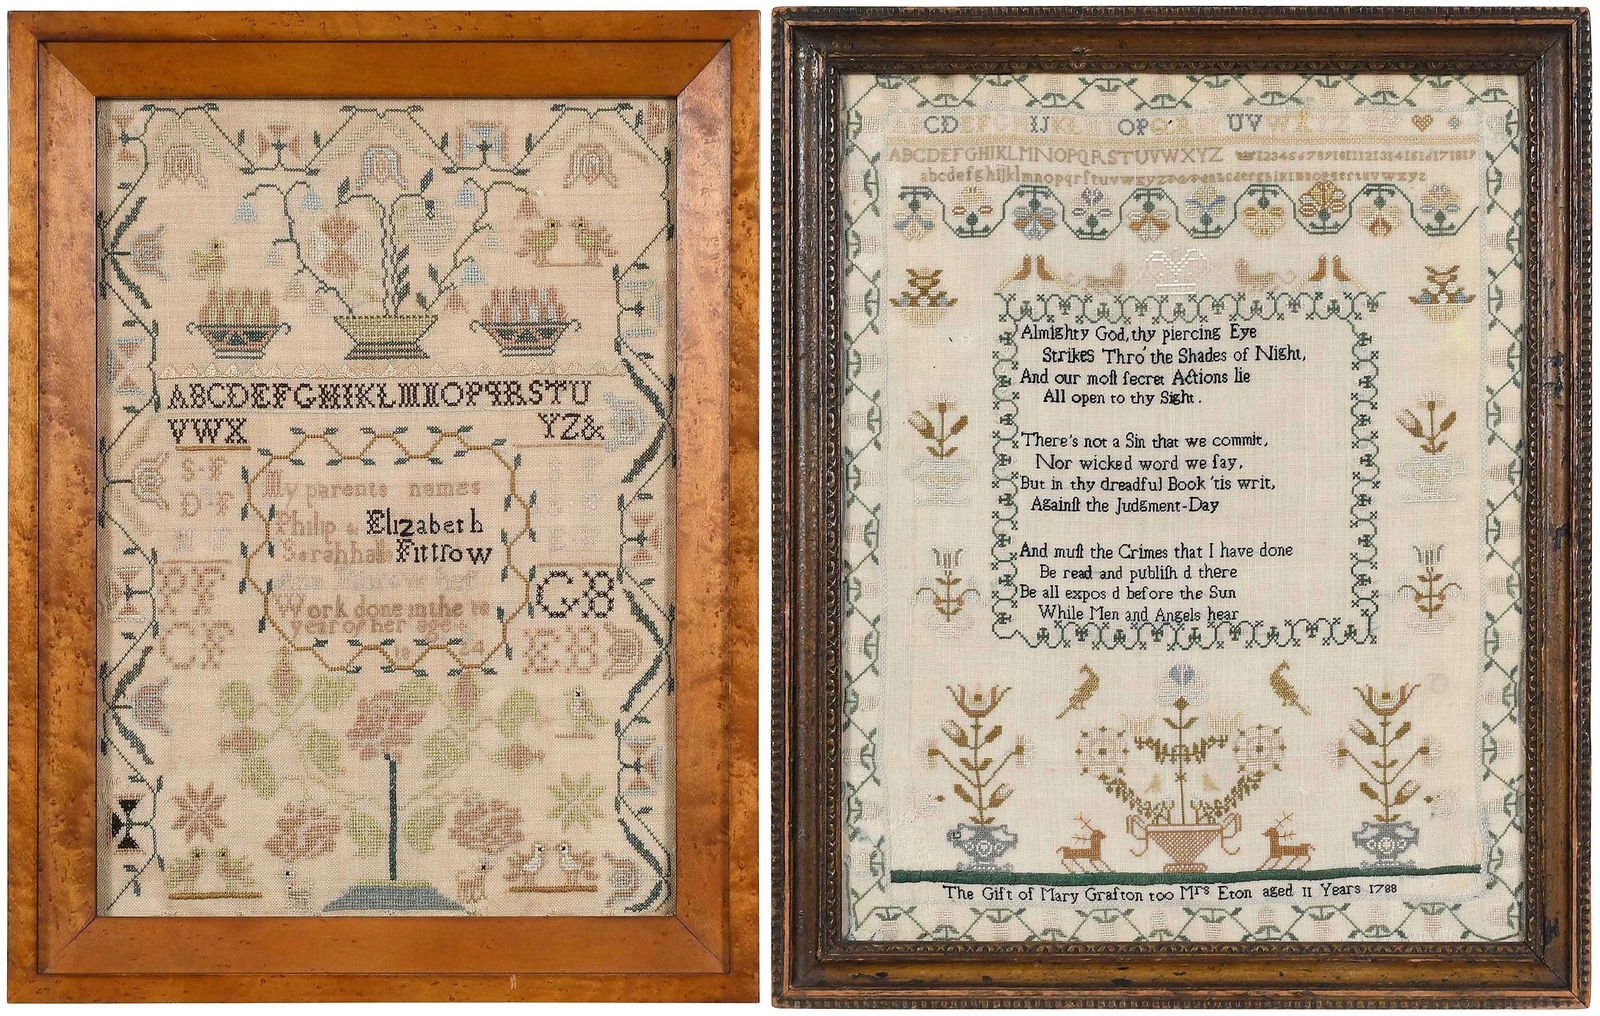 ABCDEFGHIKLMNOPQRSTU
VWX YZ&
S·F
D·F
My parents names
Philip & Elizabeth
Sarahhal Fittrow
her
Work done in the 10
year of her age
PF
CF
CB
EB
CD EFG IJKL OP UVWX
ABCDEFGHIKLMNOPQRSTUVWXYZ 12345678910111213141516171819
abcdefghijklmnopqrſtuvwxyz
Almighty God, thy piercing Eye
Strikes Thro' the Shades of Night,
And our moſt ſecret Actions lie
All open to thy Sight.
There's not a Sin that we commit,
Nor wicked word we ſay,
But in thy dreadful Book 'tis writ,
Againſt the Judgment-Day
And muſt the Crimes that I have done
Be read and publiſh d there
Be all expos d before the Sun
While Men and Angels hear
The Gift of Mary Grafton too Mrs Eton aged 11 Years 1788